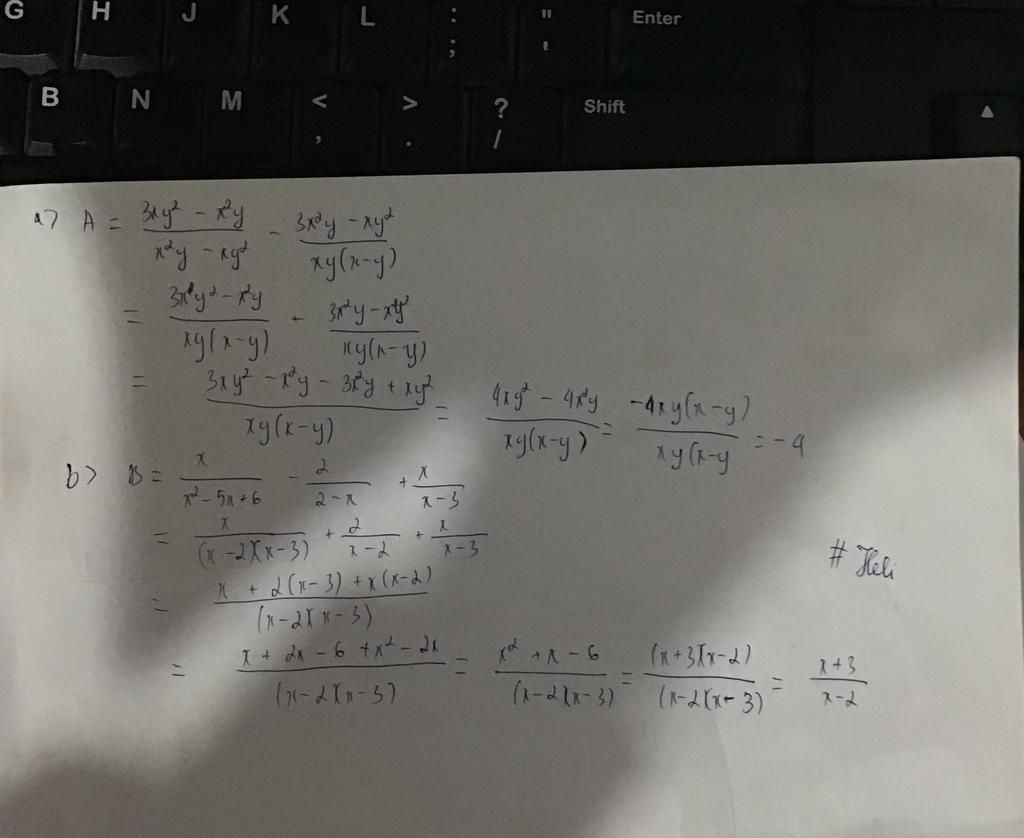 G H J K L : ; " ' Enter
B N M < , > . ? / Shift ▲
a) A = (3xy² - x²y)/(x²y - xy²) - (3x²y - xy²)/(xy(x-y))
= (3xy² - x²y)/(xy(x-y)) - (3x²y - xy²)/(xy(x-y))
= (3xy² - x²y - 3x²y + xy²)/(xy(x-y)) = (4xy² - 4x²y)/(xy(x-y)) = (-4xy(x-y))/(xy(x-y) = -4
b) B = x/(x² - 5x + 6) - 2/(2-x) + x/(x-3)
= x/((x-2)(x-3)) + 2/(x-2) + x/(x-3)
# Heli
= (x + 2(x-3) + x(x-2))/((x-2)(x-3))
= (x + 2x - 6 + x² - 2x)/((x-2)(x-3)) = (x² + x - 6)/((x-2)(x-3)) = ((x+3)(x-2))/((x-2)(x-3)) = (x+3)/(x-2)